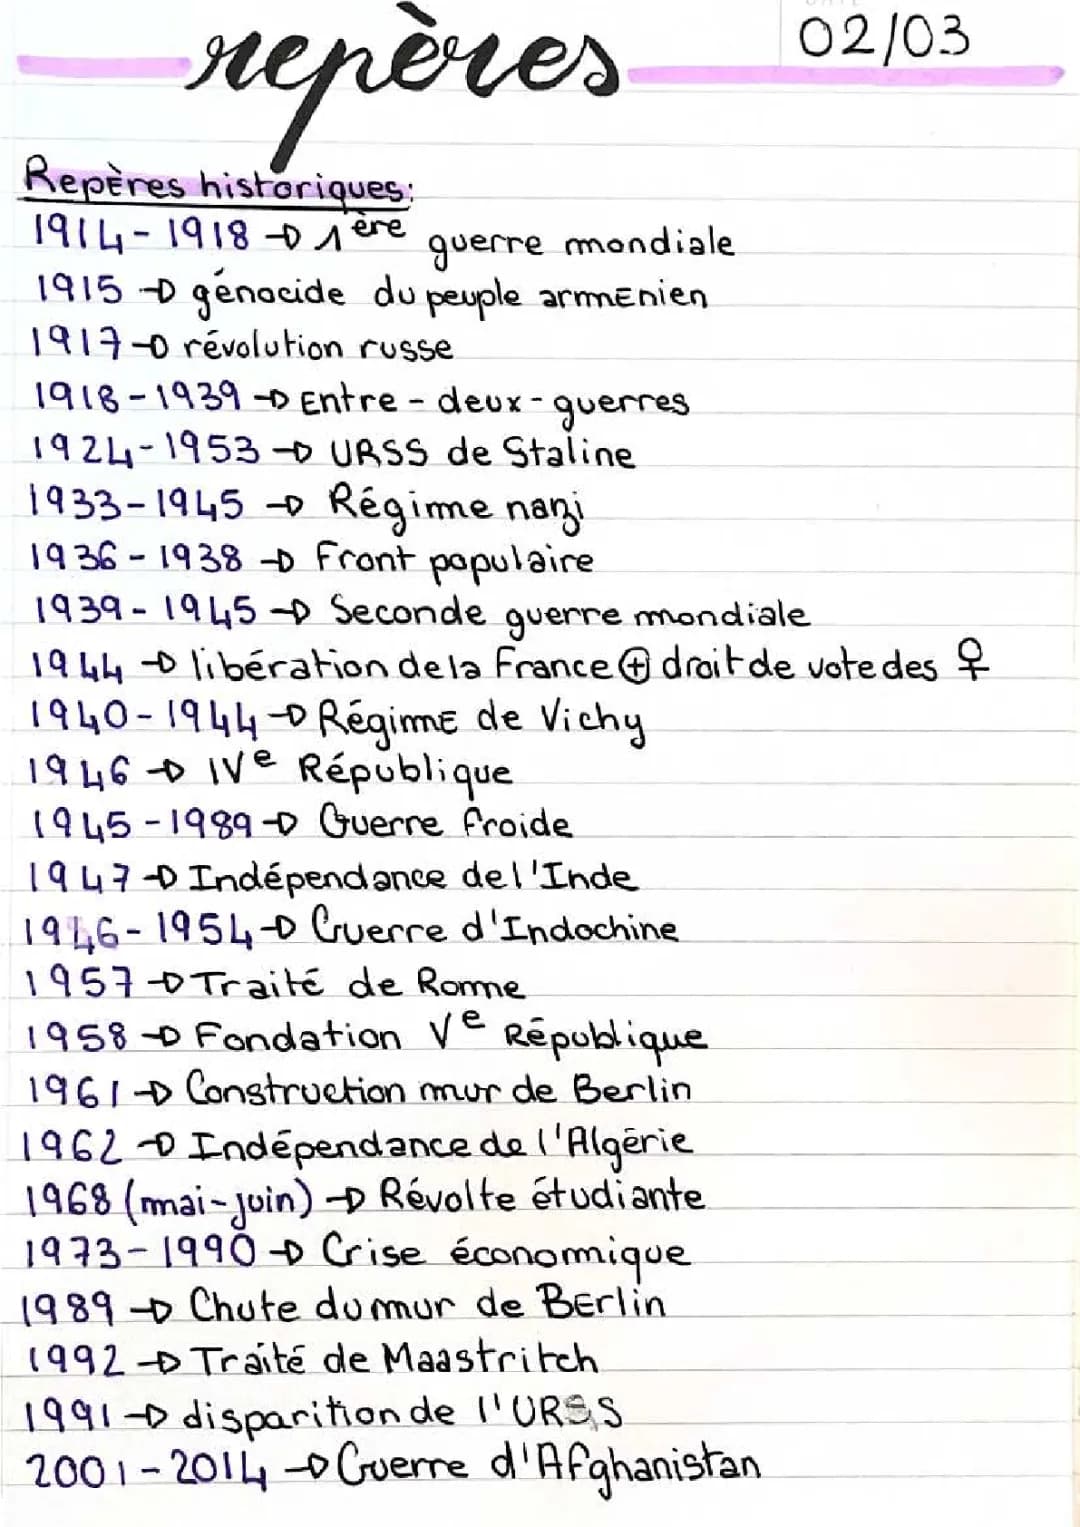 repères
02/03
Repères historiques:
1914-1918 → 1ère guerre mondiale
1915 → génocide du peuple arménien
1917 → révolution russe
1918-1939 → Entre-deux-guerres
1924-1953 → URSS de Staline
1933-1945 → Régime nazi
1936-1938 → Front populaire
1939-1945 → Seconde guerre mondiale
1944 → libération de la France ⊕ droit de vote des ♀
1940-1944 → Régime de Vichy
1946 → IVe République
1945-1989 → Guerre froide
1947 → Indépendance de l'Inde
1946-1954 → Guerre d'Indochine
1957 → Traité de Rome
1958 → Fondation Ve République
1961 → Construction mur de Berlin
1962 → Indépendance de l'Algérie
1968 (mai-juin) → Révolte étudiante
1973-1990 → Crise économique
1989 → Chute du mur de Berlin
1992 → Traité de Maastritch
1991 → disparition de l'URSS
2001-2014 → Guerre d'Afghanistan